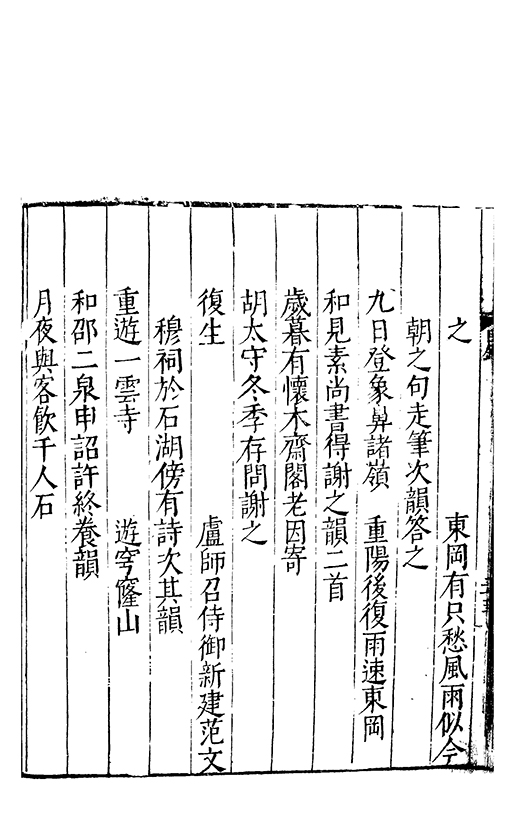 之　　東岡有只愁風雨似今
朝之句走筆次韻答之
九日登象鼻諸嶺　重陽後復雨速東岡
和見素尚書得謝之韻二首
歲暮有懷木齋閣老因寄
胡太守冬季存問謝之
復生　　盧師召侍御新建范文
穆祠於石湖傍有詩次其韻
重遊一雲寺　　遊穹窿山
和邵二泉申詔許終養韻
月夜與客飲千人石